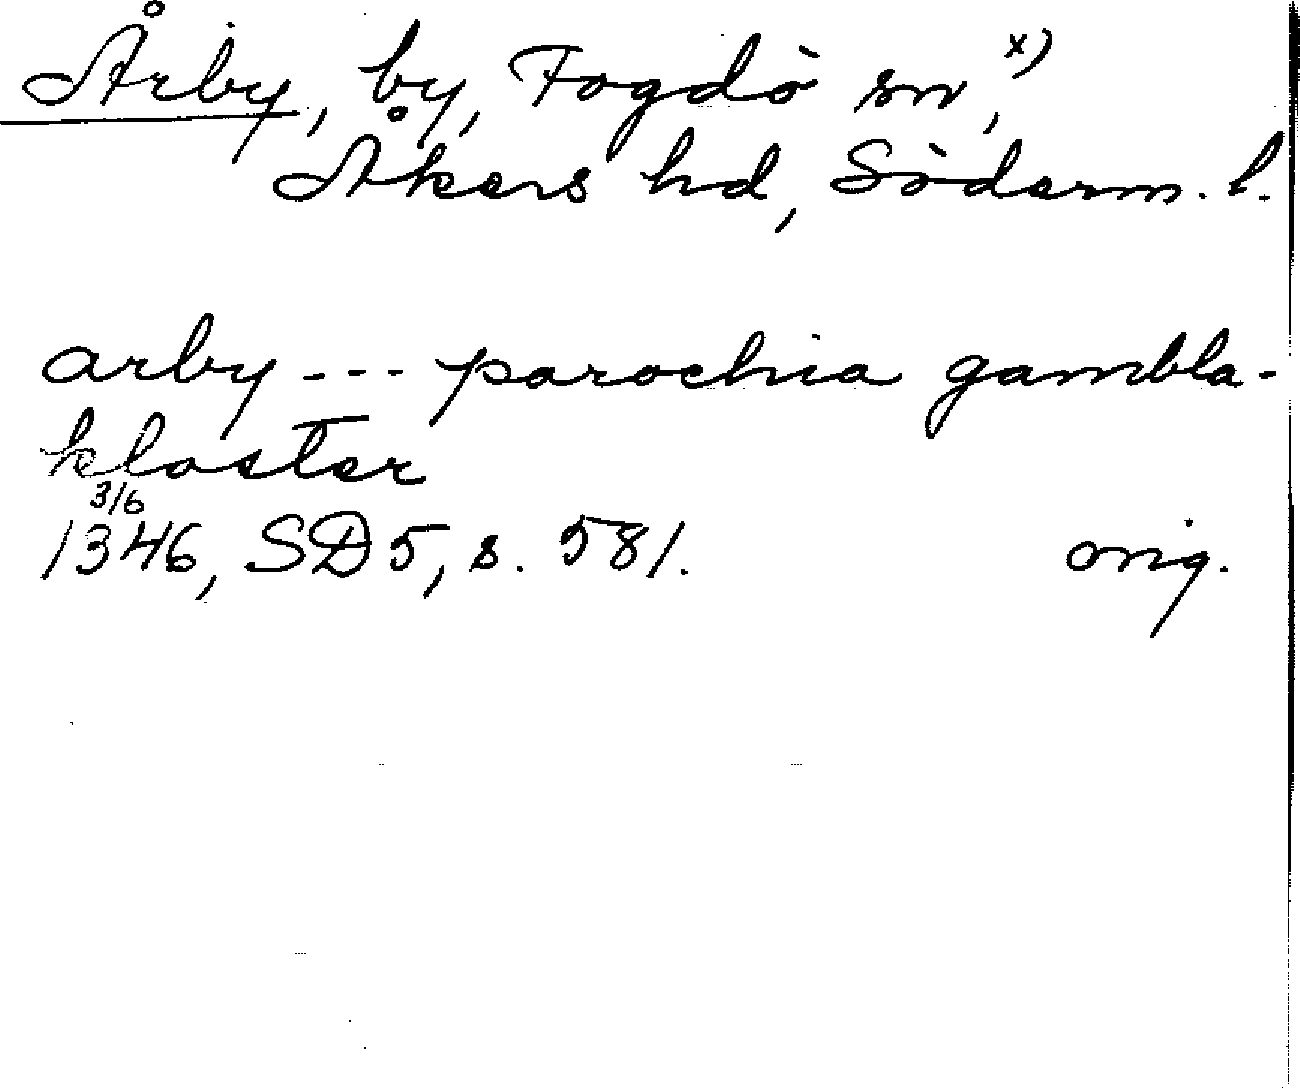 Årby, by, Fogdö sn, x)
Åkers hd, Söderm. l.
arby --- parochia gambla-
kloster
3/6
1346, SD 5, s. 581. orig.